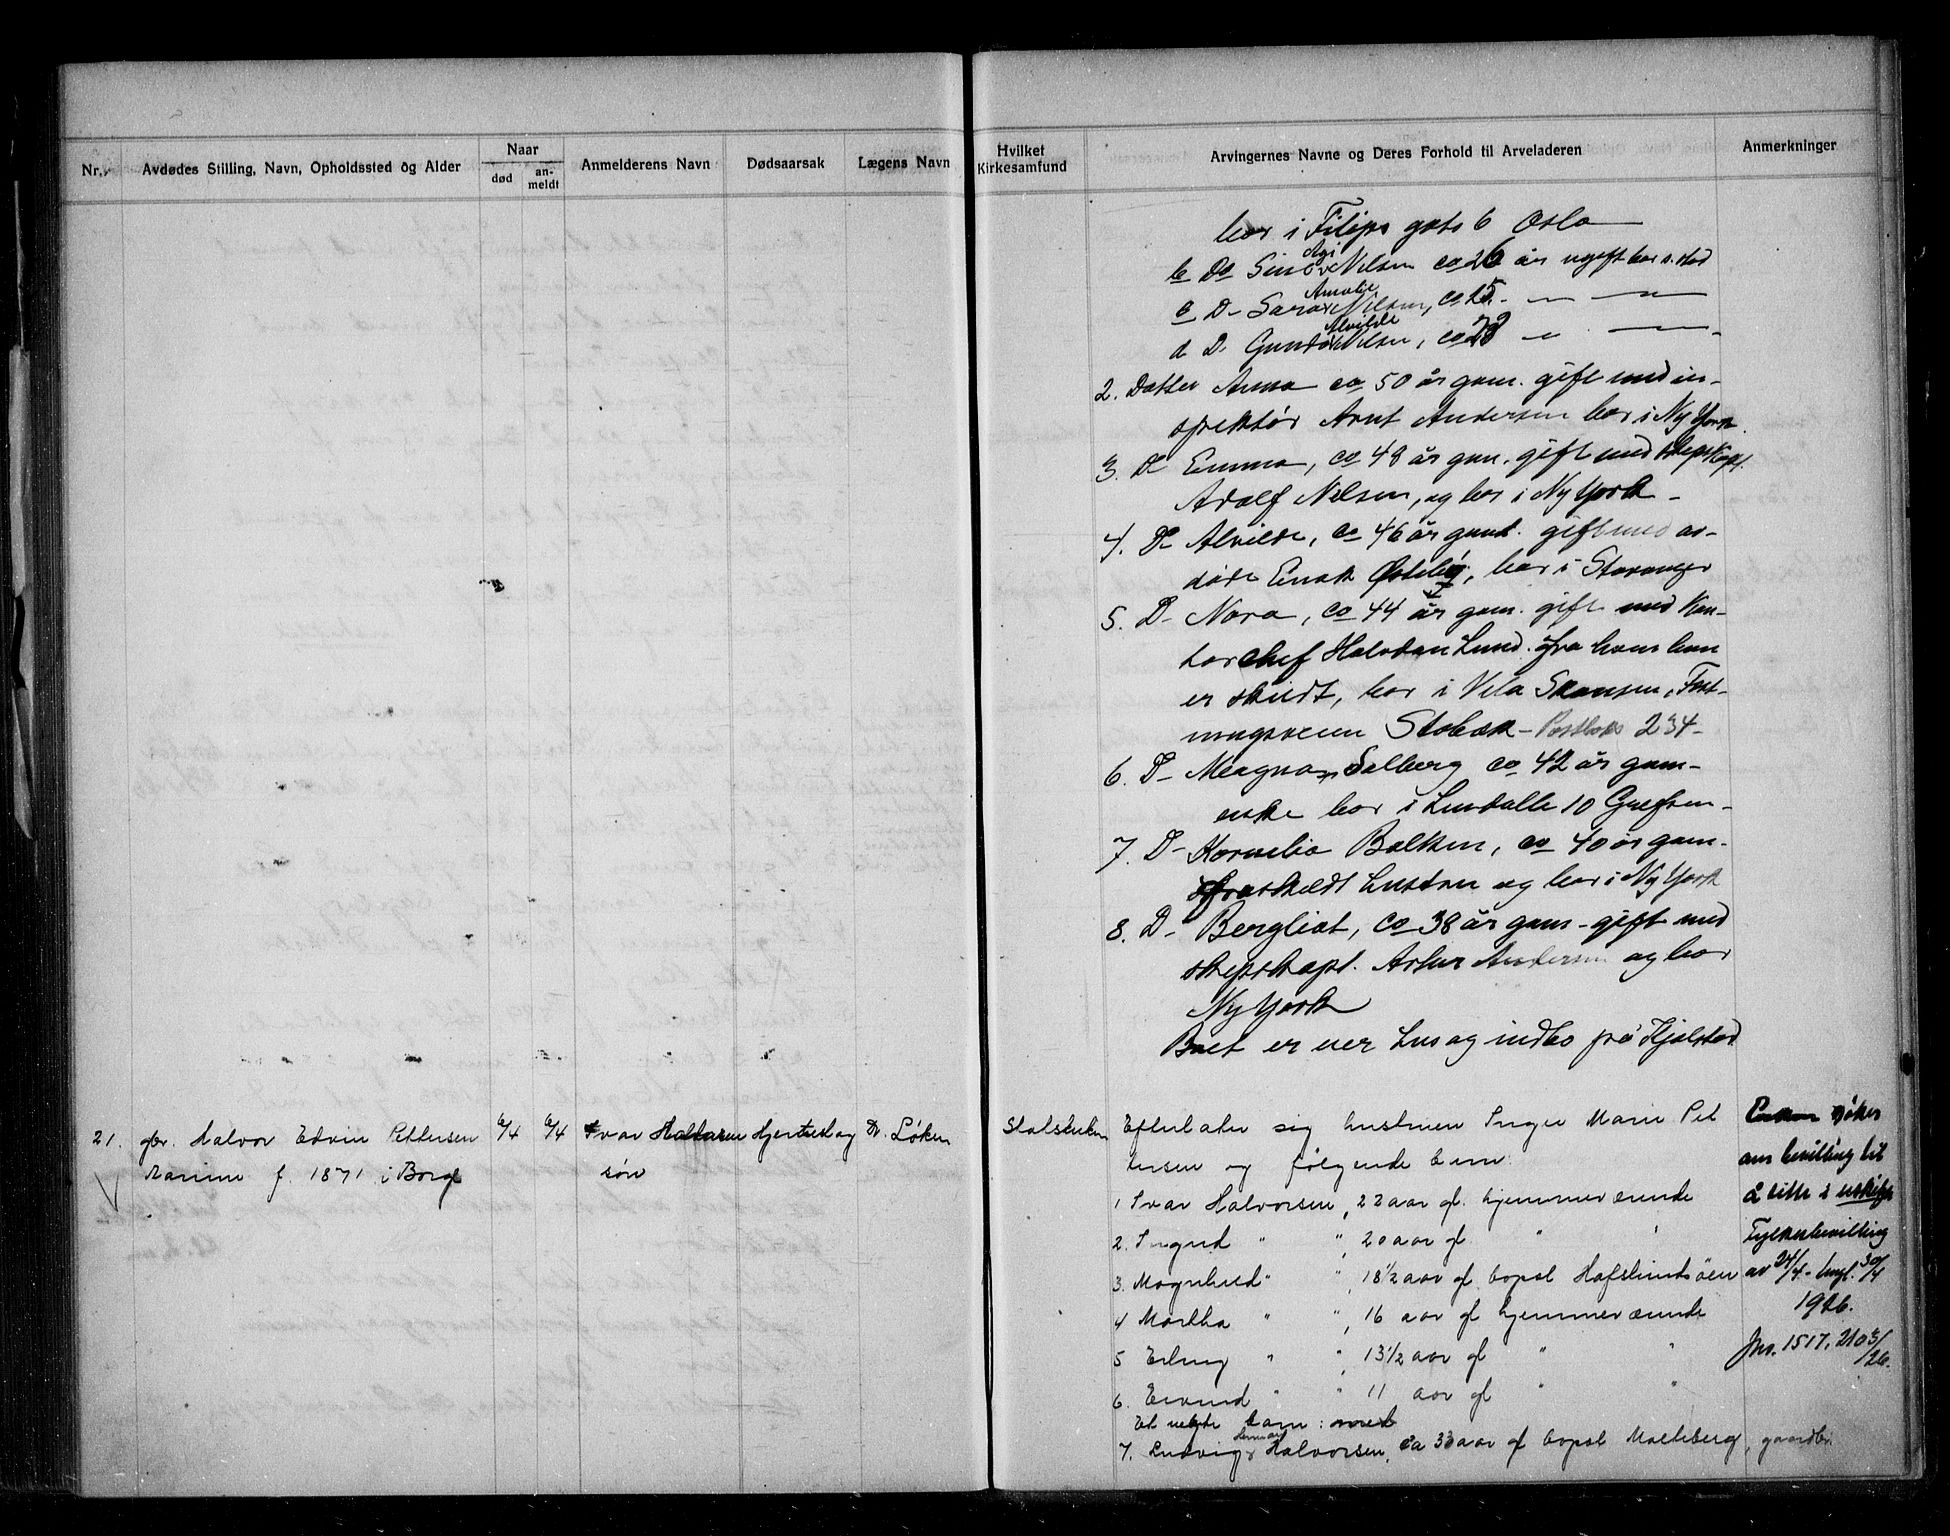 Nr.
Avdødes Stilling, Navn, Opholdssted og Alder
Naar
død
an-
meldt
Anmelderens Navn
Dødsaarsak
Lægens Navn
Hvilket
Kirkesamfund
Arvingernes Navne og Deres Forhold til Arveladeren
Anmerkninger
bor i Filips gats 6 Oslo
b Do Nilsen ca 26 år ugift bor s. sted
Amalie
c D- Sara Nilsen, ca 25 - — —
Alvilde
d D. Nilsen, ca — —
2. Datter Anna ca 50 år gam. gift med in-
spektør Arnt Andersen bor i Ny York.
3. Do Emma, ca 48 år gam. gift med skipskapt.
Adolf Nilsen, og bor i Ny York -
4. Do Alvilde, ca 46 år gaml. gift med av-
døde Enok Østeby, bor i Stavanger
5. D- Nora, ca 44 år gam. gift med Kon-
torchef Halvdan Lund. fra hvem hun
er skildt, bor i Vila Skansen, Fest-
ningsveien Stabæk - Postboks 234-
6. D- Magna Solberg ca 42 år gam-
enke bor i 10 Grefsen-
7. D- Kornelia Balken, ca 40 år gam-
fraskildt og bor i Ny York
8. D- Bergliot, ca 38 år gam - gift med
skipskapt. Artur Andersen og bor
Ny York
Boet er hus og indbo på Kjølstad
21. gbr. Halvor Edvin Pettersen 6/4 6/4 Ivar Halvorsen Hjerteslag Dr. Løken Statskirken Efterlater sig hustruen Inger Marie Pet
Narum f. 1871 i Borge
søn
tersen og følgende barn:
1 Ivar Halvorsen, 22 aar gl. hjemmeværende
2. Ingrid " ", 20 aar gl. " "
3. Magnhild " ", 18 1/2 aar gl. bopæl Hafslundsøen
4 Martha " ", 16 aar gl hjemmeværende
5 Erling " ", 13 1/2 aar gl " "
6. Eivind " " 11 aar gl " "
Et uegte barn:
7. Ludvig Halvorsen, ca 33 aar gl bopæl Molteberg, gaardbr.
Enken søker
om bevilling til
å sitte i uskifte
Fylkesbevilling
av 24/4 - tingl. 30/4
1926.
Jnr. 1517, 2103/26.